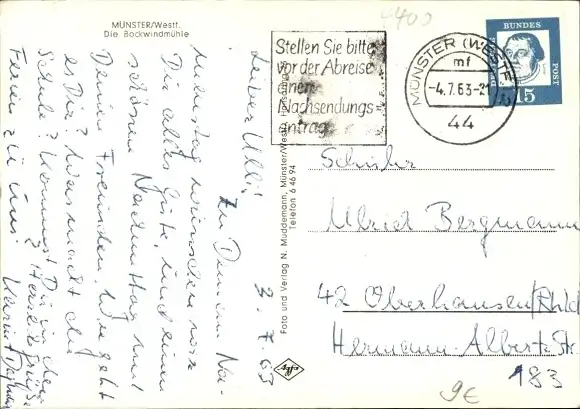 MÜNSTER/Westf.
Die Bockwindmühle
4400
Stellen Sie bitte
vor der Abreise
einen
Nachsendungs
antrag
MÜNSTER (WESTF
mf
-4.7.63-2
44
DEUTSCHE BUNDES POST
15
3.7.63
Lieber Ulli!
Zu Deinem Na-
menstag wünschen wir
Dir alles Gute, und einen
schönen Nachmittag mit
Deinen Freunden. Wie geht
es Dir? Was macht die
Schule? Kommst Du in den
Ferien zu uns? Herzl. Grüße
Foto und Verlag N. Muddemann, Münster/Westf.
Telefon 6 46 94
Schüler
Ulrich Bergmann
42 Oberhausen/Rhld
Hermann-Albertz-Str.
183
9€